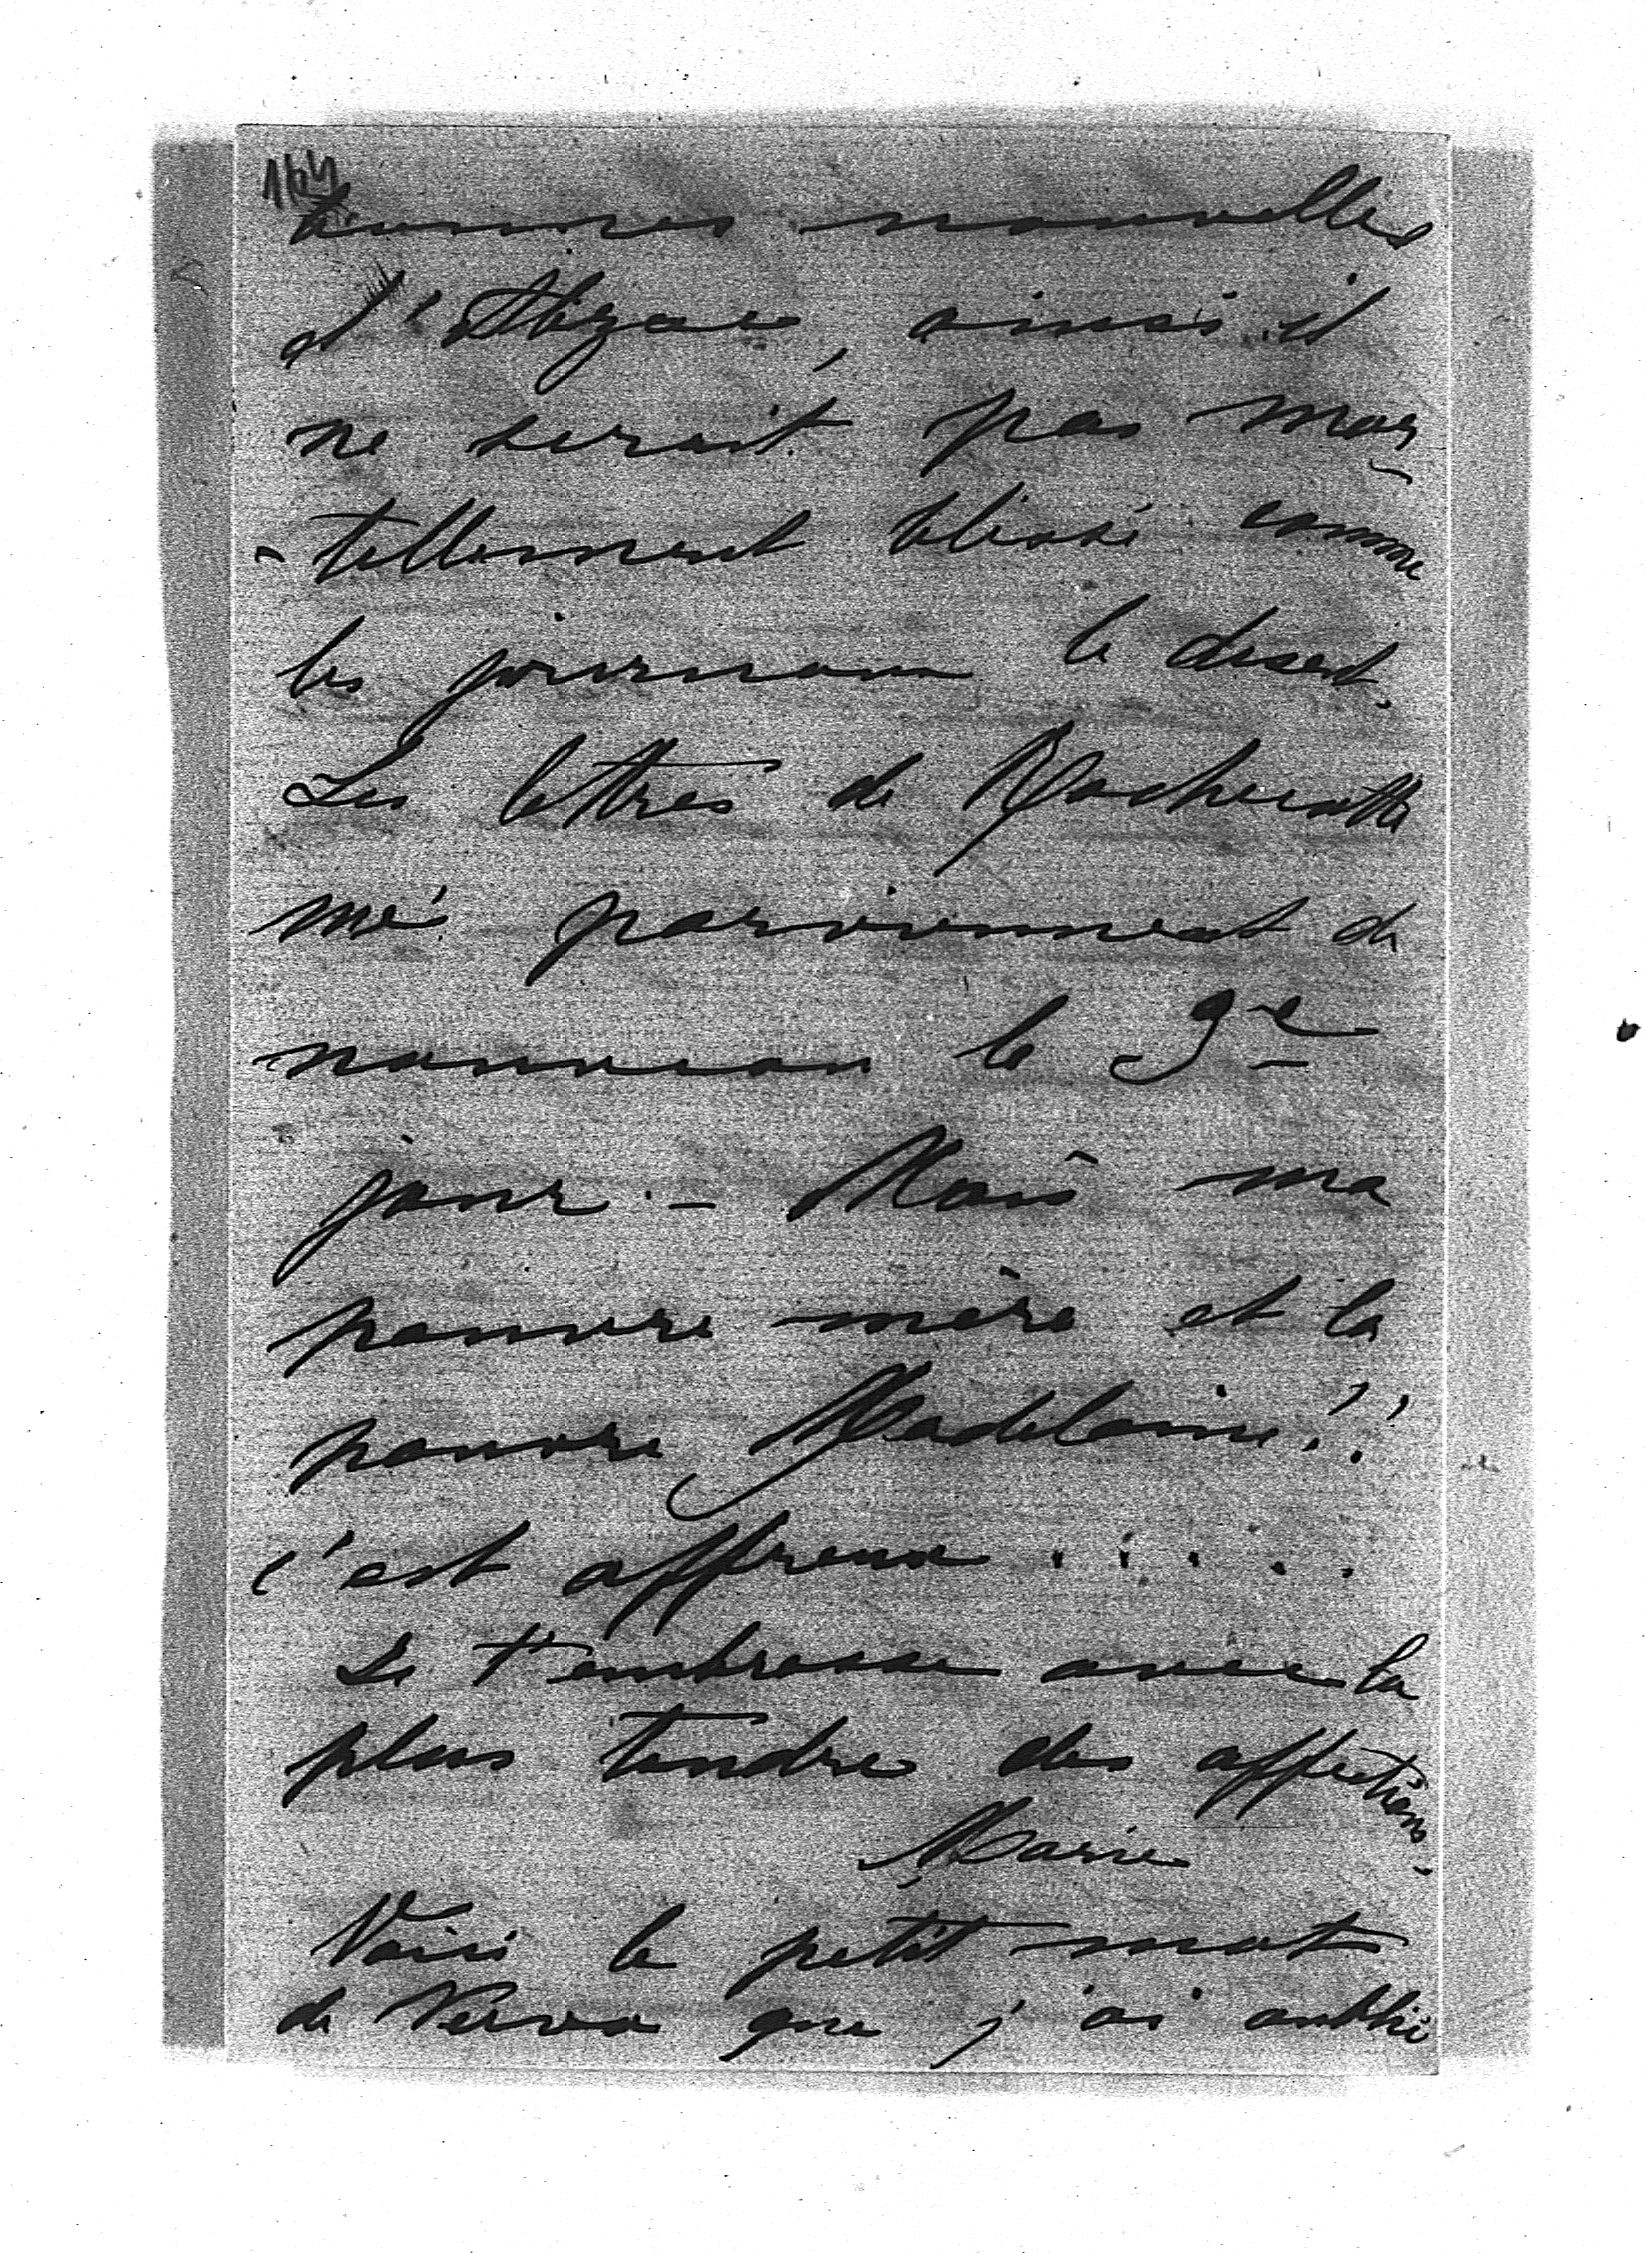 164
bonnes nouvelles
d'Abzac, ainsi il
ne serait pas mor
-tellement blessé comme
les journaux le disent.
Les lettres de
me parviennent de
nouveau le 9e
jour. - Mais ma
pauvre mère et la
pauvre Madelaine!!
c'est affreux . . . . .
Je t'embrasse avec la
plus tendre des affections.
Marie
Voici le petit mot
de Vera que j'ai oublié